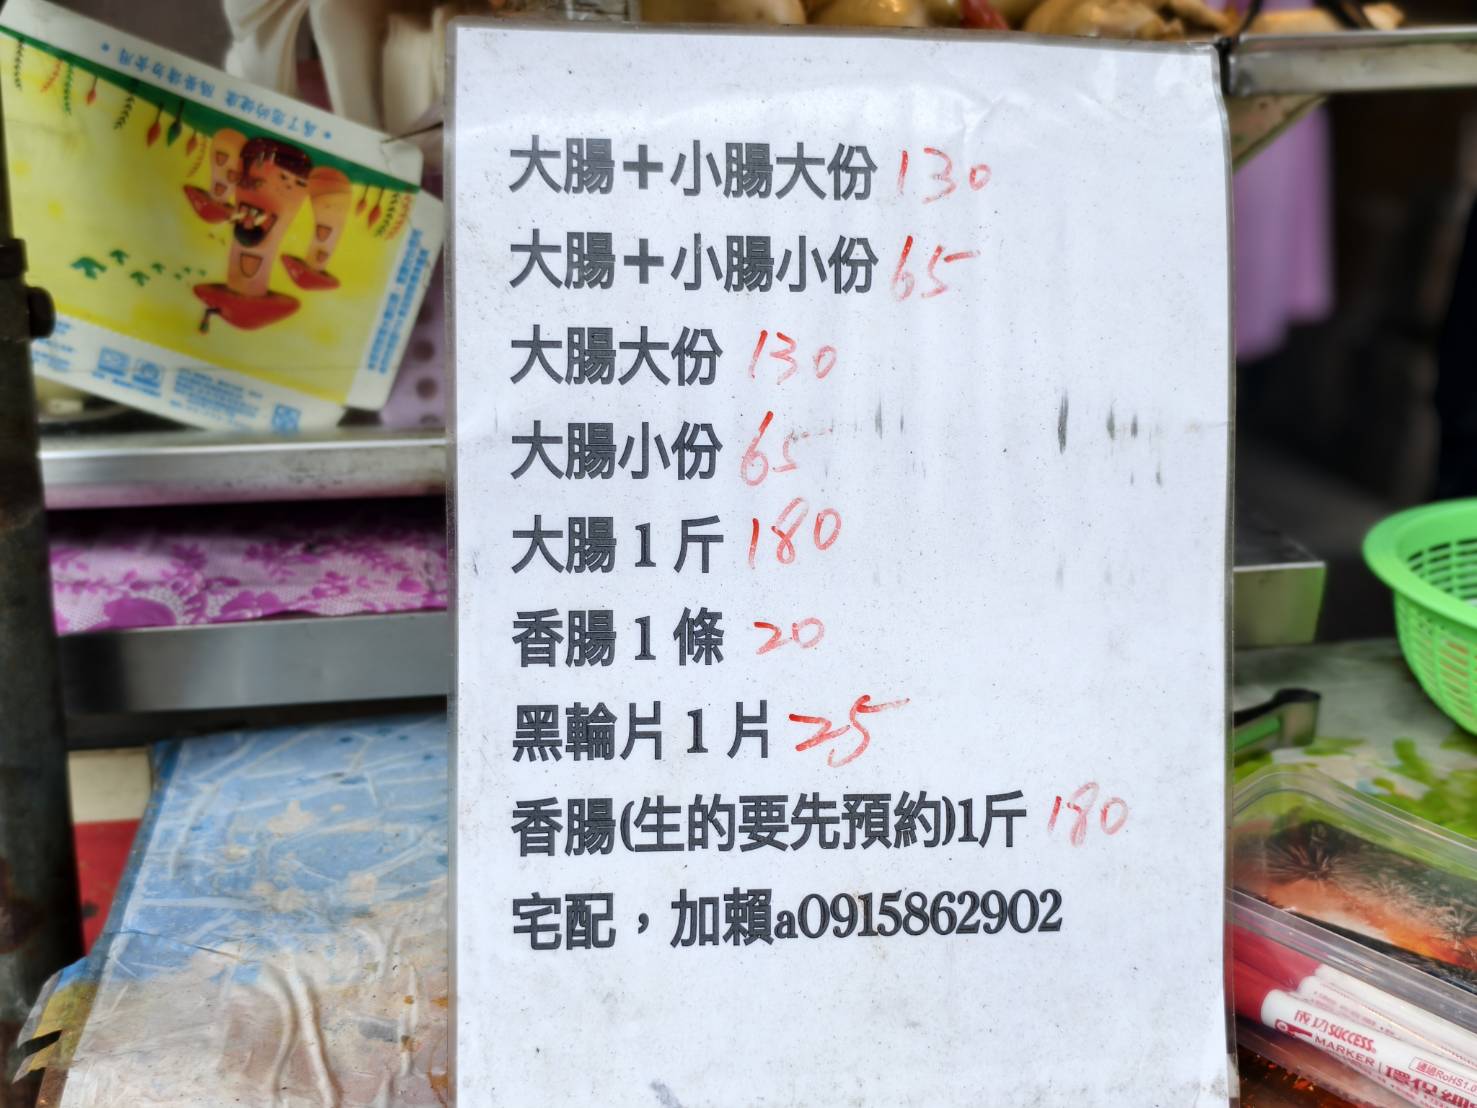 為了您的健康 隔餐請勿食用
大腸＋小腸大份 130
大腸＋小腸小份 65
大腸大份 130
大腸小份 65
大腸 1 斤 180
香腸 1 條 20
黑輪片 1 片 25
香腸(生的要先預約)1斤 180
宅配，加賴a0915862902
成功 SUCCESS
MARKER
通過RoHS1.0